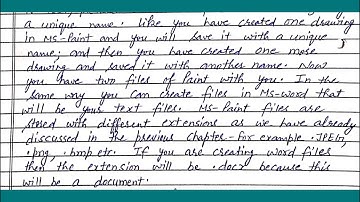 a unique name. Like you have created one drawing
in Ms-Paint and you will save it with a unique
name; and then you have created one more
drawing and saved it with another name. Now
you have two files of Paint with you. In the
same way you can create files in Ms-word that
will be your text files. Ms-Paint files are
stored with different extensions as we have already
discussed in the previous chapter-for example .JPEG,
.png, .bmp etc. If you are creating word files
then the extension will be .docx because this
will be a document.